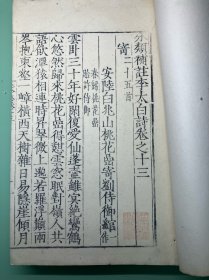 分類補註李太白詩卷之十三
寄二十五首
安陸白兆山桃花巖寄劉侍御綰
雲卧三十年好閑復愛仙蓬壺雖冥絶鸞鶴
心悠然歸來桃花巖得憩雲窓眠對嶺人共
語飲潭猿相連時昇翠微上邈若羅浮巔兩
岑抱東壑一嶂横西天樹雜日易隱崖傾月